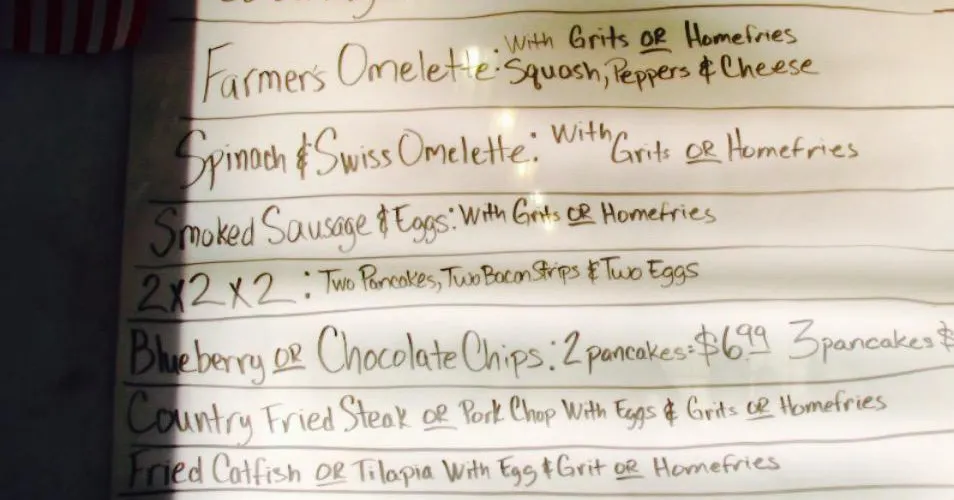 Farmer's Omelette: With Grits OR Homefries
Squash, Peppers & Cheese
Spinach & Swiss Omelette: With Grits OR Homefries
Smoked Sausage & Eggs: With Grits OR Homefries
2x2x2: Two Pancakes, Two Bacon Strips & Two Eggs
Blueberry OR Chocolate Chips: 2 pancakes = $6.99 3 pancakes $
Country Fried Steak OR Pork Chop With Eggs & Grits OR Homefries
Fried Catfish OR Tilapia With Egg & Grit OR Homefries